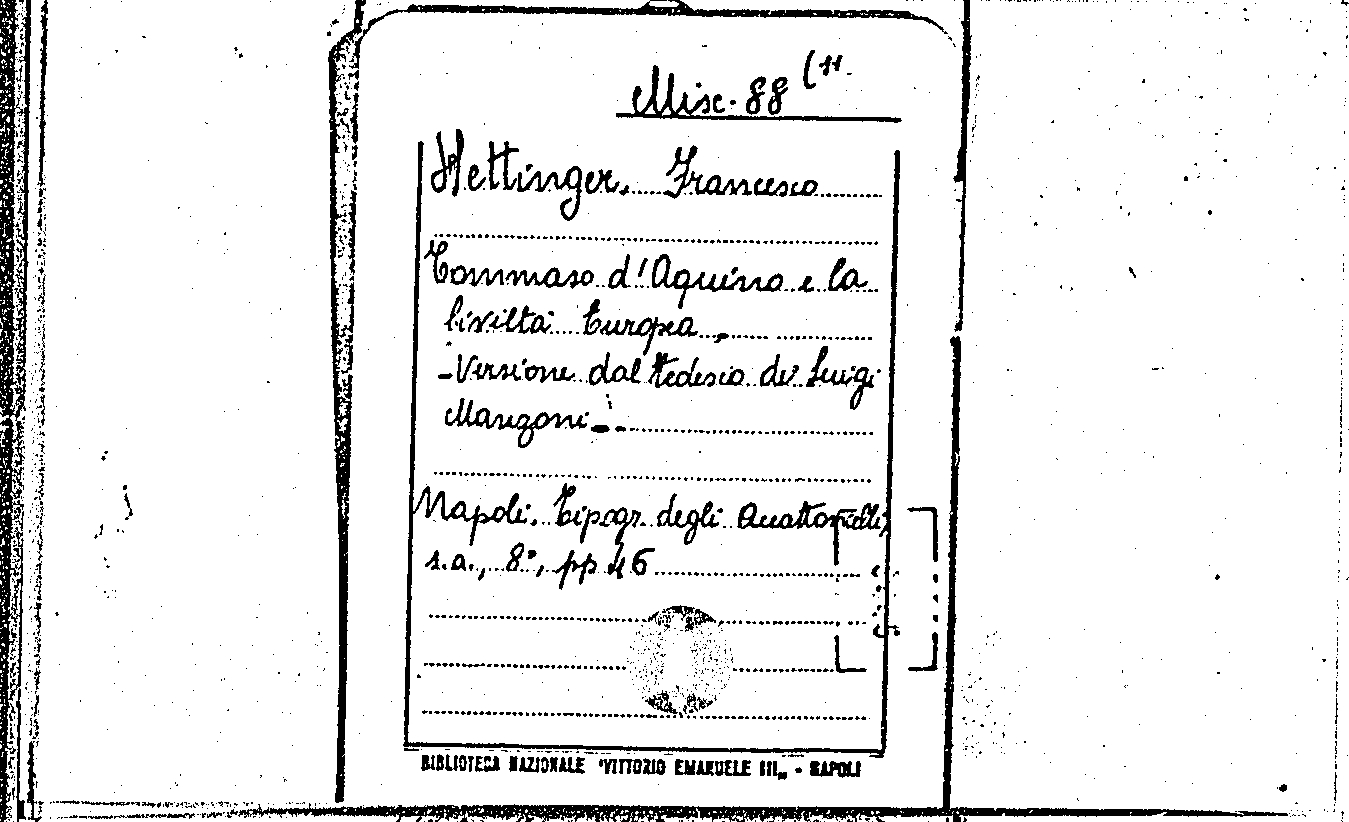 Misc. 88 (11.
Hettinger, Francesco
Tommaso d'Aquino e la
Civiltà Europea.
- Versione dal tedesco di Luigi
Manzoni -.
Napoli, Tipogr. degli Accattoncelli,
s.a., 8°, pp 46
BIBLIOTECA NAZIONALE "VITTORIO EMANUELE III„ - NAPOLI